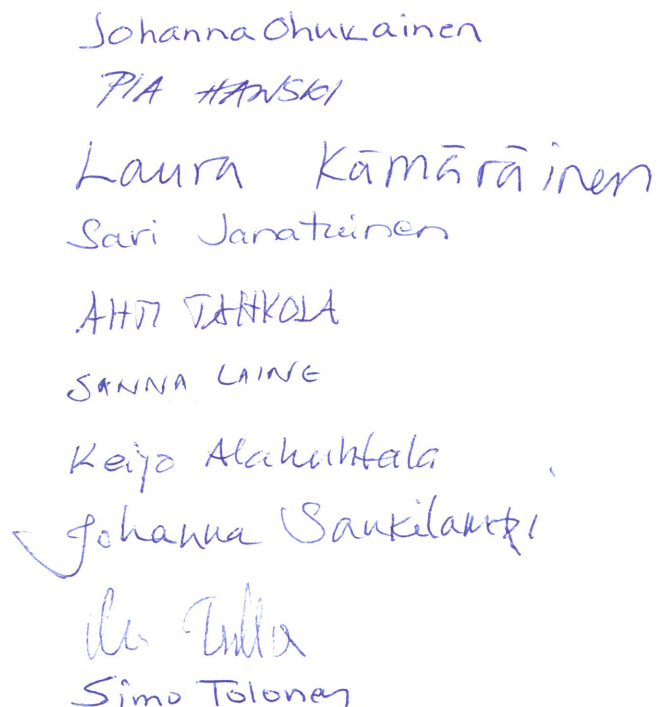 Johanna Ohukainen
PIA HANSKI
Laura Kämäräinen
Sari Janatuinen
AHTI TAHKOLA
SANNA LAINE
Keijo Alahuhtala
Johanna Saukilampi
Simo Tolonen